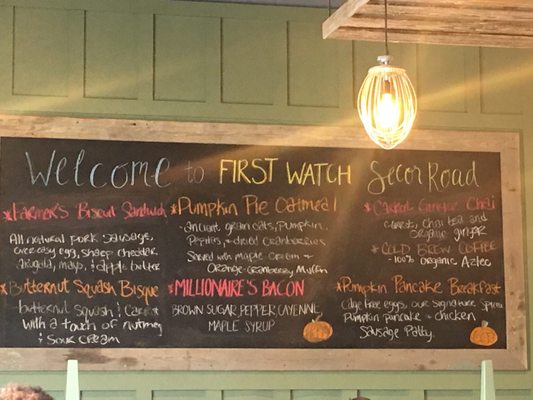 Welcome to FIRST WATCH Secor Road
*Farmer's Biscuit Sandwich
All natural pork sausage,
over easy egg, sharp cheddar
arugula, mayo, & apple butter
*Butternut Squash Bisque
butternut squash & carrot
with a touch of nutmeg
& sour cream
*Pumpkin Pie Oatmeal
-ancient grain oats, pumpkin,
Pepitas, + dried cranberries
Served with maple cream &
Orange-cranberry Muffin
*MILLIONAIRE'S BACON
BROWN SUGAR, PEPPER, CAYENNE,
MAPLE SYRUP
*Carrot Ginger Chai
carrots, chai tea and
organic ginger
*COLD BREW COFFEE
-100% organic Aztec
*Pumpkin Pancake Breakfast
Cage free eggs, our signature
Pumpkin pancake + chicken
Sausage Patty